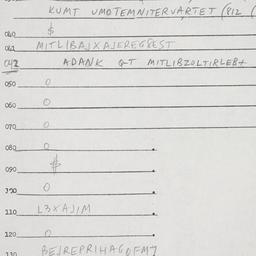 KUMT UMDTEMNITERVARTET (812 (
040 $
041 MITLIBAJXAJEREGREST
042 ADANK GT MITLIBZOLTIRLEB+
050 0
060 0
070 0
080 0
090 $
100 0
110 L3XAJIM
120 0
130 BEJREPRIHAGOFM7